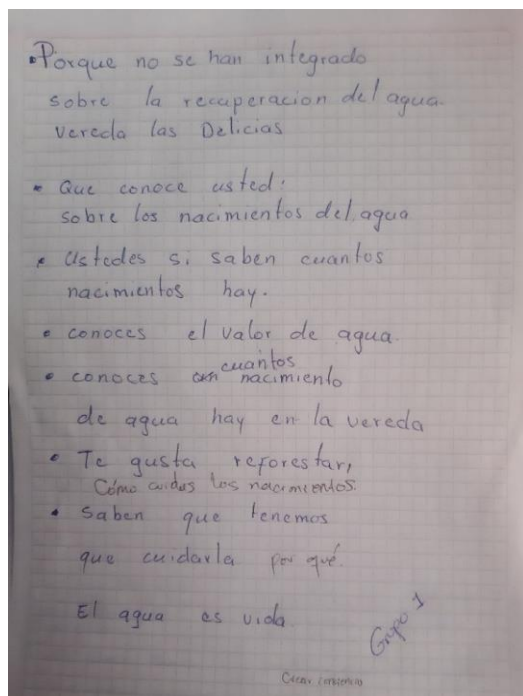 • Porque no se han integrado
sobre la recuperacion del agua.
vereda las Delicias
• Que conoce usted:
sobre los nacimientos del agua
• Ustedes si saben cuantos
nacimientos hay.
• conoces el valor de agua.
• conoces cuantos nacimiento
de agua hay en la vereda
• Te gusta reforestar,
Cómo cuidas los nacimientos.
• Saben que tenemos
que cuidarla por qué.
El agua es vida.
Grupo 1